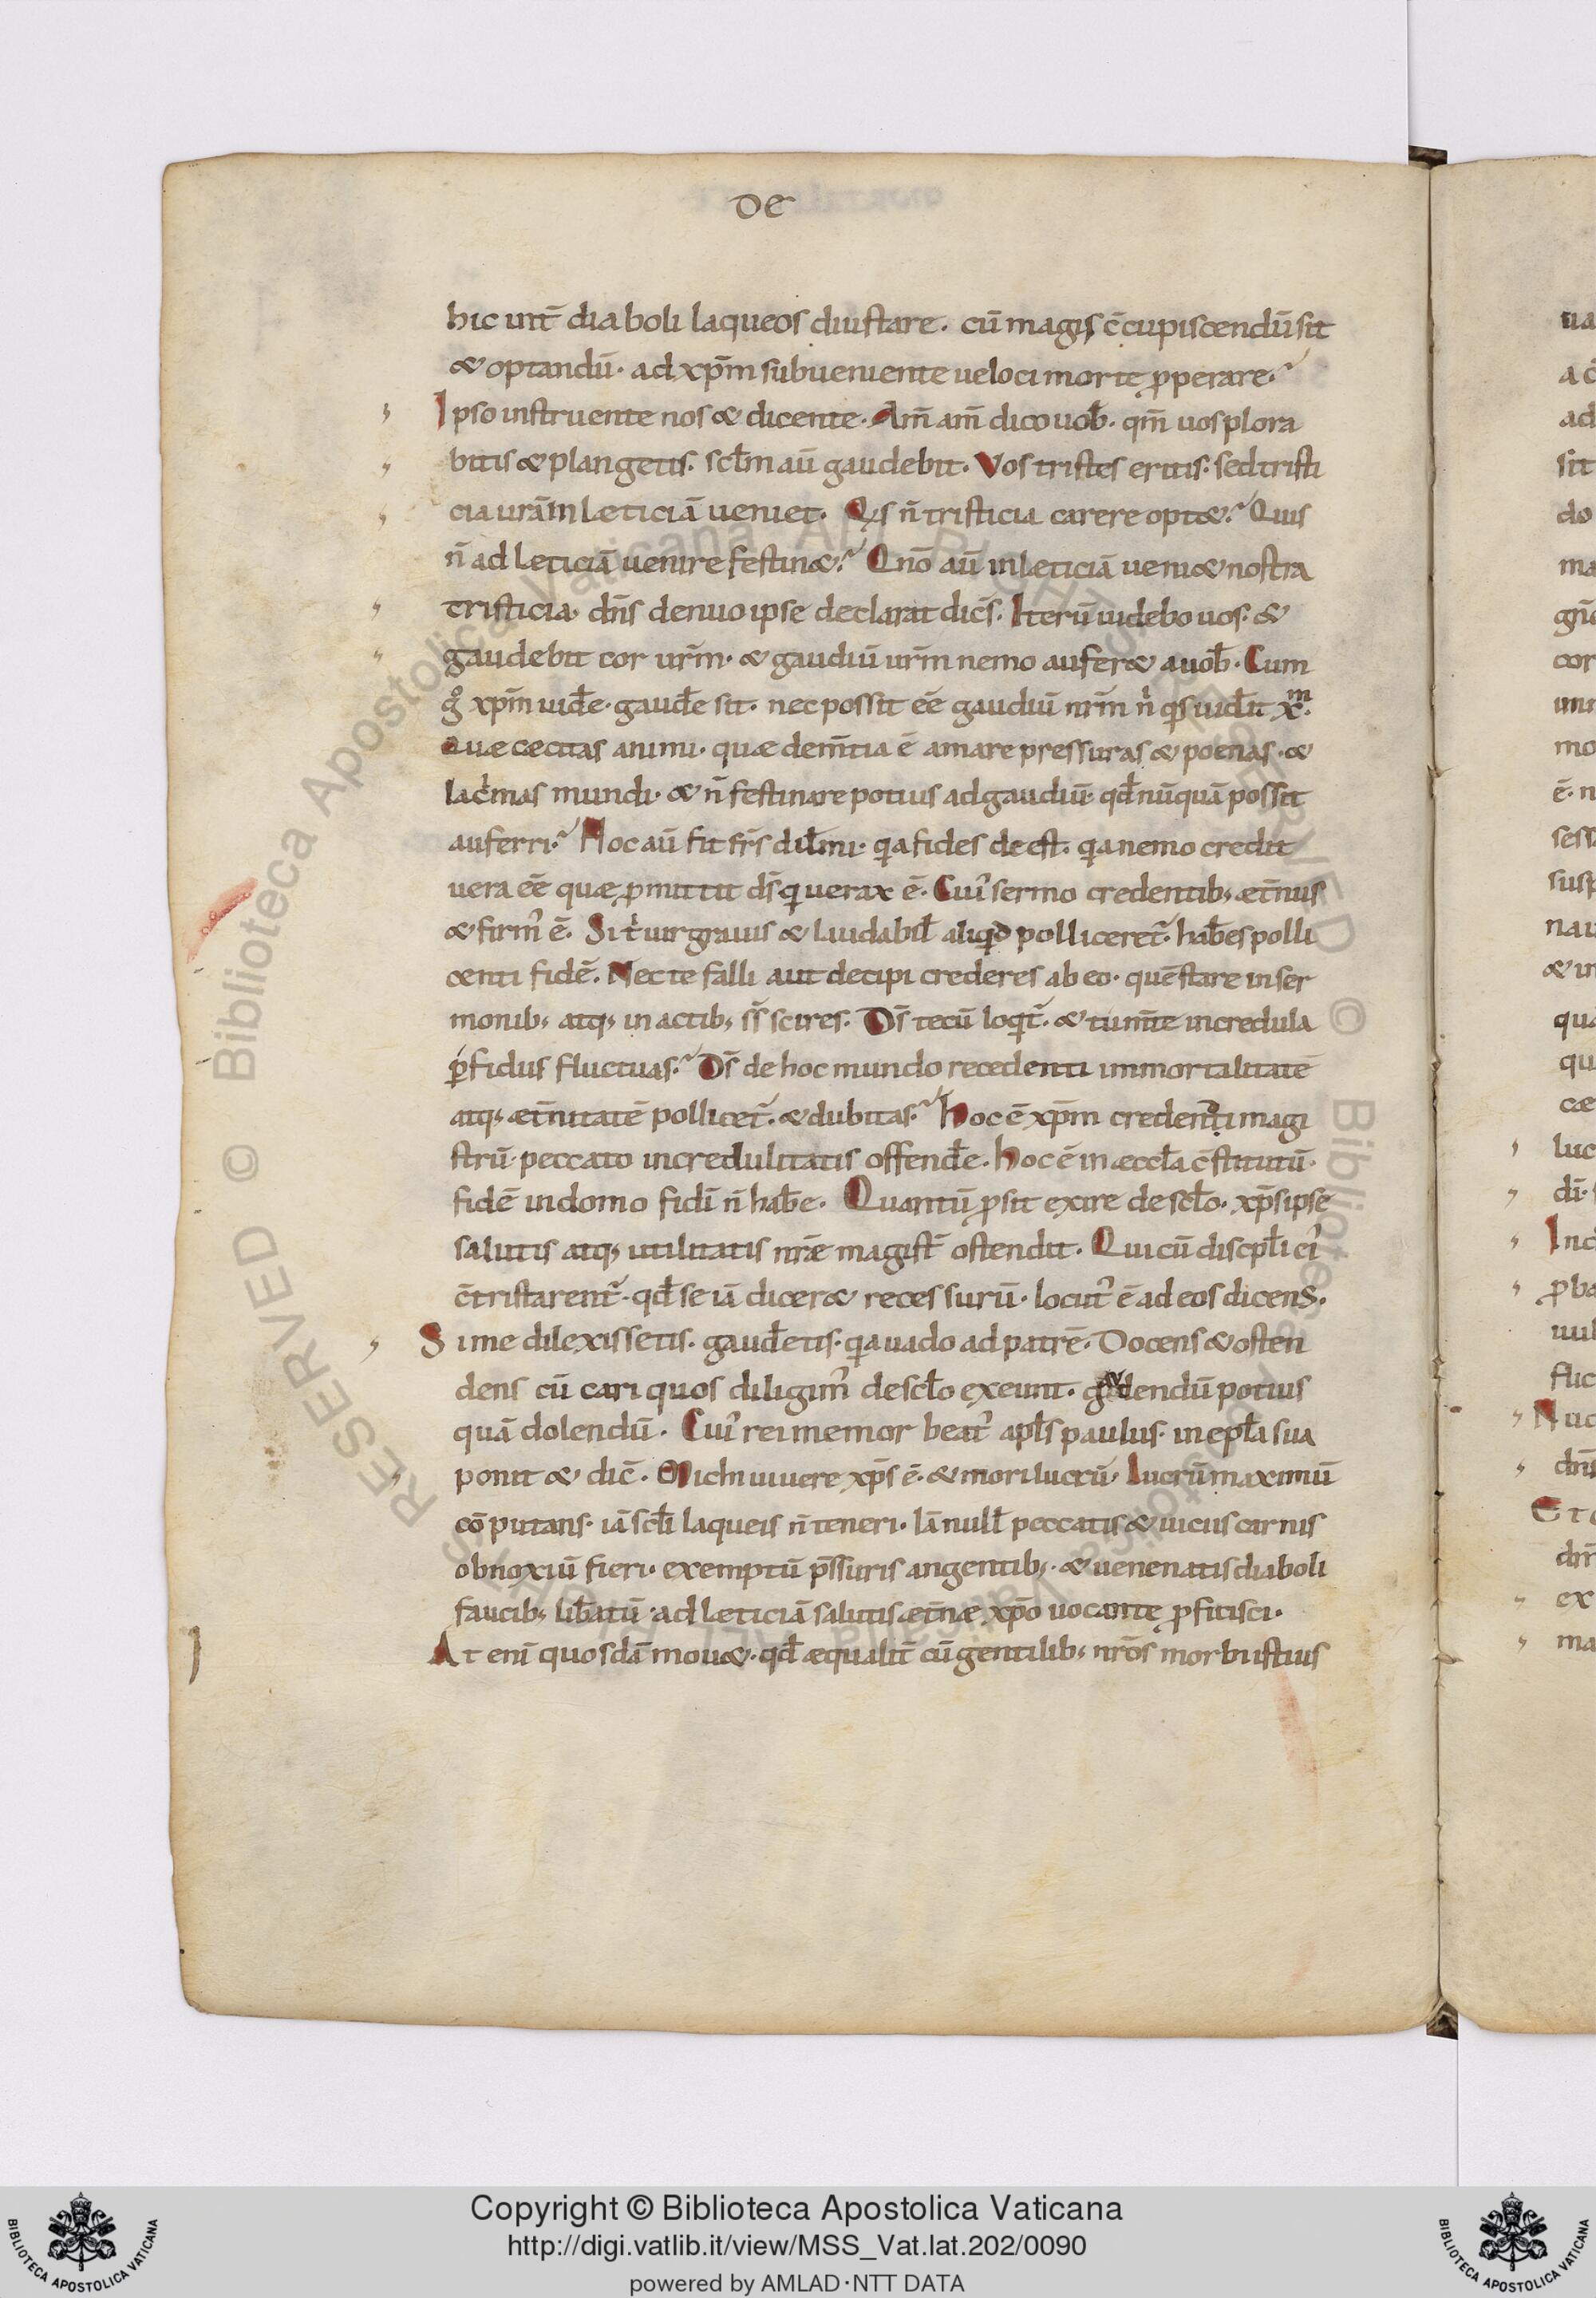 DE
hic int̄ diaboli laqueos diu stare. cū magis c̄cupiscendū sit
& optandū. ad xp̄m subueniente ueloci morte ꝓperare.
Ipso instruente nos & dicente. Am̄ am̄ dico uob̄. qm̄ uos plora
bitis & plangetis. scl̄m aū gaudebit. Vos tristes eritis. sed tristi
cia urā in læticiā ueniet. Qs n̄ tristicia carere opt&? Quis
n̄ ad leticiā uenire festin&? Qn̄o aū in læticiā ueni& nostra
tristicia. dn̄s denuo ipse declarat dic̄s. Iterū uidebo uos. &
gaudebit cor ur̄m. & gaudiū ur̄m nemo aufer& a uob̄. Cum
gͦ xp̄m uid̄e gaud̄e sit. nec possit ēe gaudiū nr̄m nͥ qs uid̄it xͫ.
Quæ cecitas animi. quæ dem̄tia ē amare pressuras & poenas. &
lacͥmas mundi. & n̄ festinare potius ad gaudiū qd̄ nūquā possit
auferri? Hoc aū fit fr̄s dil̄mi. qa fides deest. qa nemo credit
uera ēe quæ ꝓmittit ds̄ qi uerax ē. Cui᾽ sermo credentib; æt̄nus
& firm᾽ ē. Si tͥ uir grauis & laudabil̄ aliqd polliceret᾽. hab̄es polli
centi fidē. Nec te falli aut decipi crederes ab eo. quē stare in ser
monib; atq; in actib; ss̄ scires. Ds̄ tecū loqt᾽. & tu m̄te incredula
ꝑfidus fluctuas? Ds̄ de hoc mundo recedenti immortalitatē
atq; æt̄nitatē pollicet᾽. & dubitas? Hoc ē xp̄m credentiū magi
strū peccato incredulitatis offend̄e. hoc ē in æccl̄a c̄stitutū.
fidē in domo fidī n̄ hab̄e. Quantū ꝓsit exire de scl̄o. xp̄s ipse
salutis atq; utilitatis nr̄æ magist̄ ostendit. Qui cū discipl̄i ei᾽
c̄tristarent᾽. qd̄ se iā dicer& recessurū. locut᾽ ē ad eos dicens.
Si me dilexissetis. gaud̄etis. qa uado ad patrē. Docens & osten
dens cū cari quos diligim᾽ de scl̄o exeunt. gaudendū potius
quā dolendū. Cui᾽ rei memor beat᾽ apl̄s paulus. in epl̄a sua
ponit & dic̄. Michi uiuere xp̄s ē. & mori lucrū. lucrū maximū
cōputans. iā scl̄i laqueis n̄ teneri. Iā null̄ peccatis & uicus carnis
obnoxiū fieri. exemptū p̄ssuris angentib;. & uenenatis diaboli
faucib; lib̄atū. ad læticiā salutis æt̄næ xp̄o uocante ꝓfitisci.
At enī quosdā mou&. qd̄ æqualit̄ cū gentilib; nr̄os morbi istius
ua
a c̄
ad
sit
do
ma
gn̄
cor
mo
ē. n
sess
susp
nau
& in
qua
qu
cæ
luc
dī.
Ind
ꝓba
uul
fluc
Nuc
dn̄s
Et
ex
ma
Copyright © Biblioteca Apostolica Vaticana
http://digi.vatlib.it/view/MSS_Vat.lat.202/0090
powered by AMLAD·NTT DATA
BIBLIOTECA APOSTOLICA VATICANA
BIBLIOTECA APOSTOLICA VATICANA